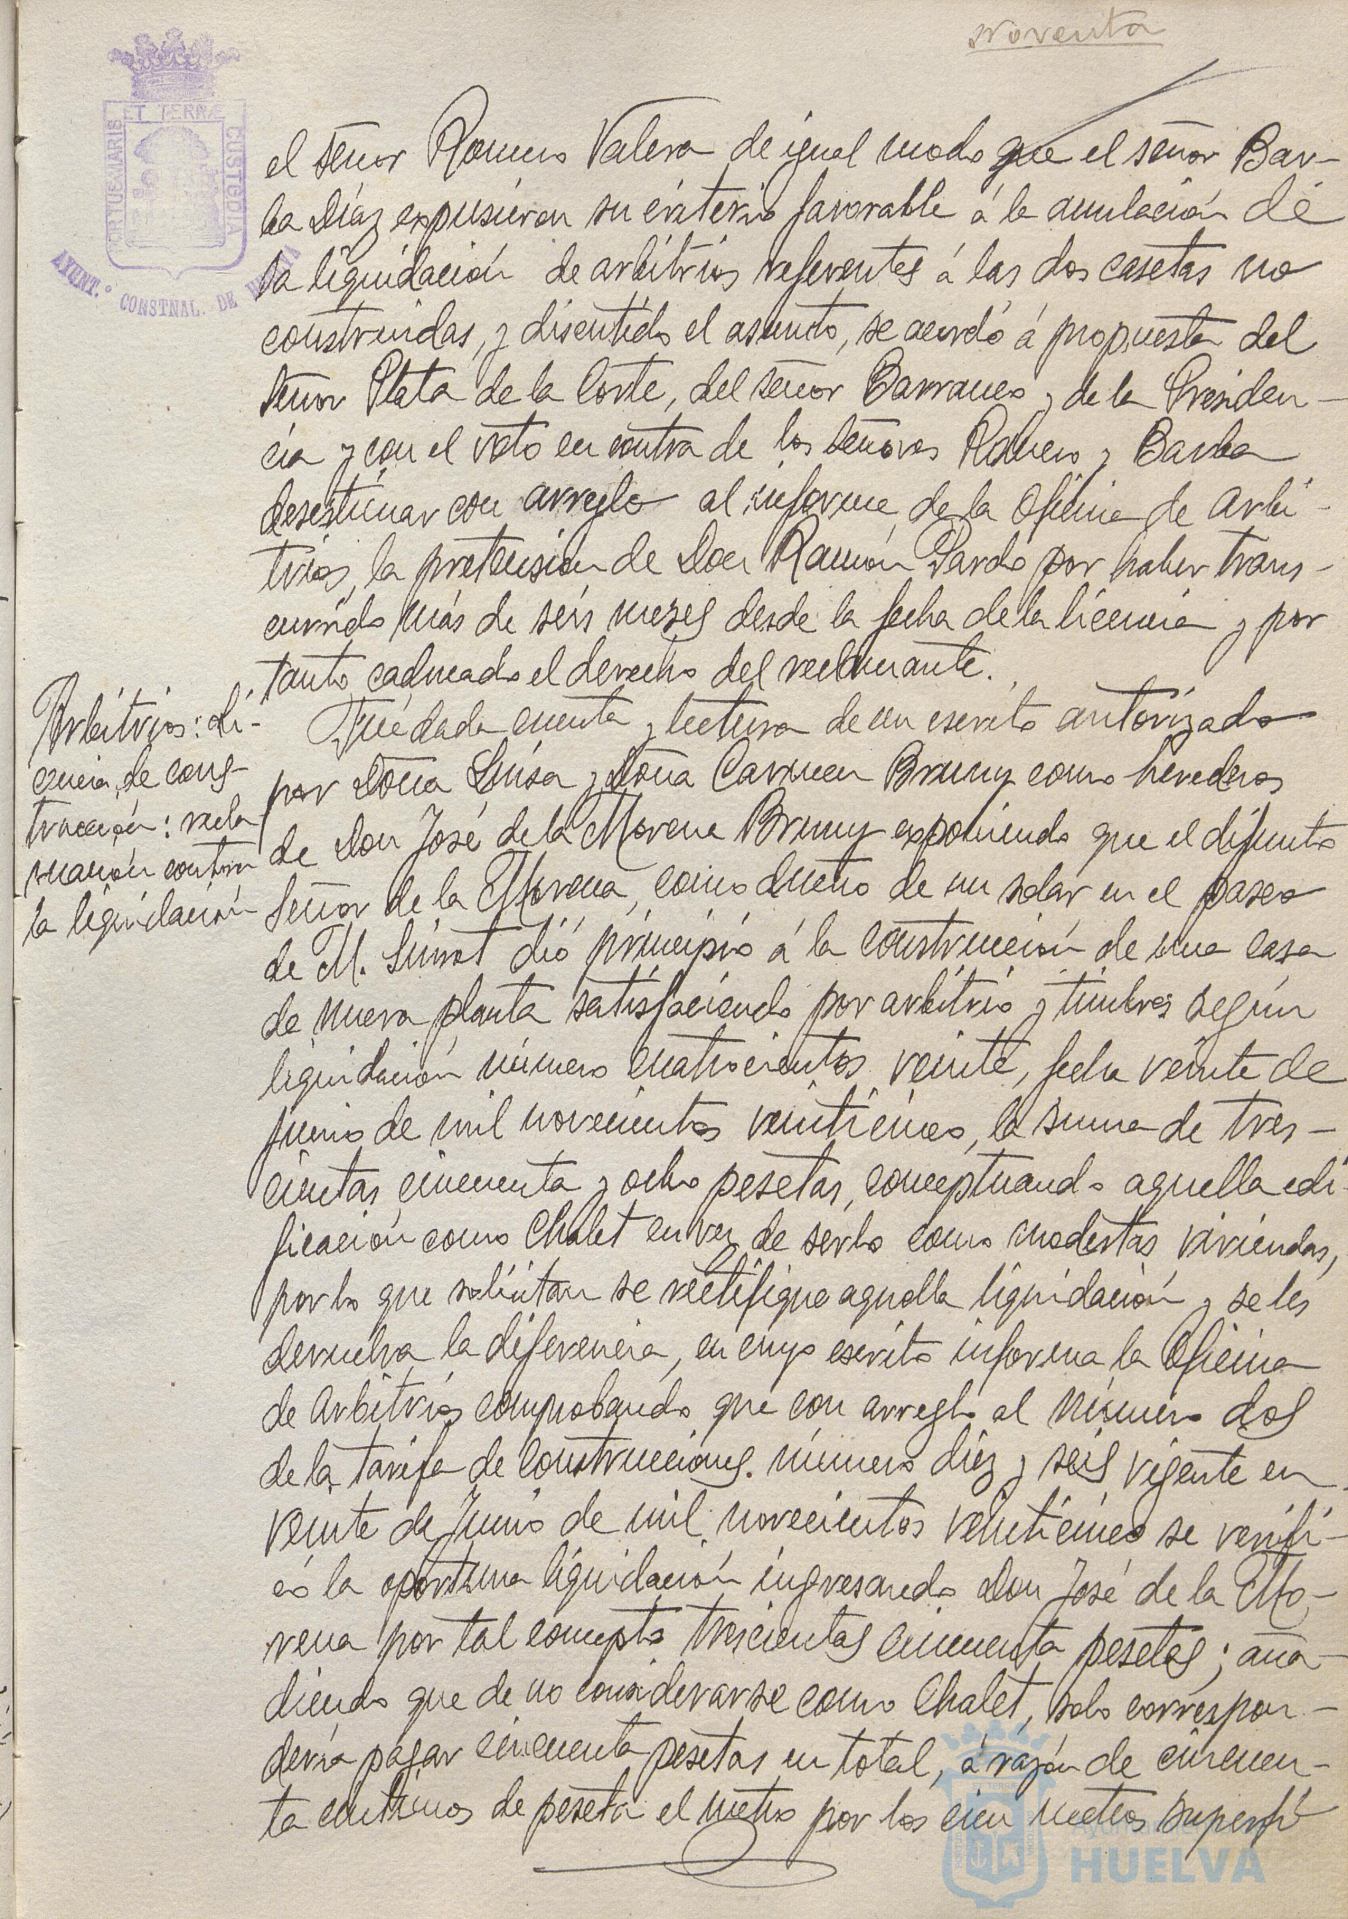 Noventa
PORTUS MARIS ET TERRÆ CUSTODIA
AYUNT.º CONSTNAL. DE HUELVA
el señor Romero Valera de igual modo que el señor Bar-
ba Díaz expusieron su criterio favorable á la anulación de
la liquidación de arbitrios referentes á las dos casetas no
construidas, y discutido el asunto, se acordó á propuesta del
señor Plata de la Corte, del señor Barranco y de la Presiden-
cia y con el voto en contra de los señores Romero y Barba
desestimar con arreglo al informe de la Oficina de Arbi-
trios, la pretensión de Don Ramón Pardo por haber trans-
currido más de seis meses desde la fecha de la licencia y por
tanto caducado el derecho del reclamante.
Arbitrios: li-
cencia de cons-
trucción: recla
mación contra
la liquidación
Fué dada cuenta y lectura de un escrito autorizado
por Doña Luisa y Doña Carmen Bruny como herederos
de Don José de la Morena Bruny exponiendo que el difunto
señor de la Morena, como dueño de un solar en el paseo
de M. Siurot dió principio á la construcción de una casa
de nueva planta satisfaciendo por arbitrio y timbres según
liquidación número cuatrocientos veinte, fecha veinte de
junio de mil novecientos veinticinco, la suma de tres-
cientas cincuenta y ocho pesetas, conceptuando aquella edi-
ficación como Chalet en vez de serlo como modestas viviendas,
por lo que solicitan se rectifique aquella liquidación y se les
devuelva la diferencia, en cuyo escrito informa la Oficina
de Arbitrios comprobando que con arreglo al número dos
de la tarifa de construcciones número diez y seis vigente en
veinte de Junio de mil novecientos veinticinco se verifi-
có la oportuna liquidación ingresando Don José de la Mo-
rena por tal concepto trescientas cincuenta pesetas; aña-
diendo que de no considerarse como Chalet, solo correspon-
dería pagar cincuenta pesetas en total, á razón de cincuen-
ta céntimos de peseta el metro por los cien metros superfi-
Ayuntamiento
HUELVA